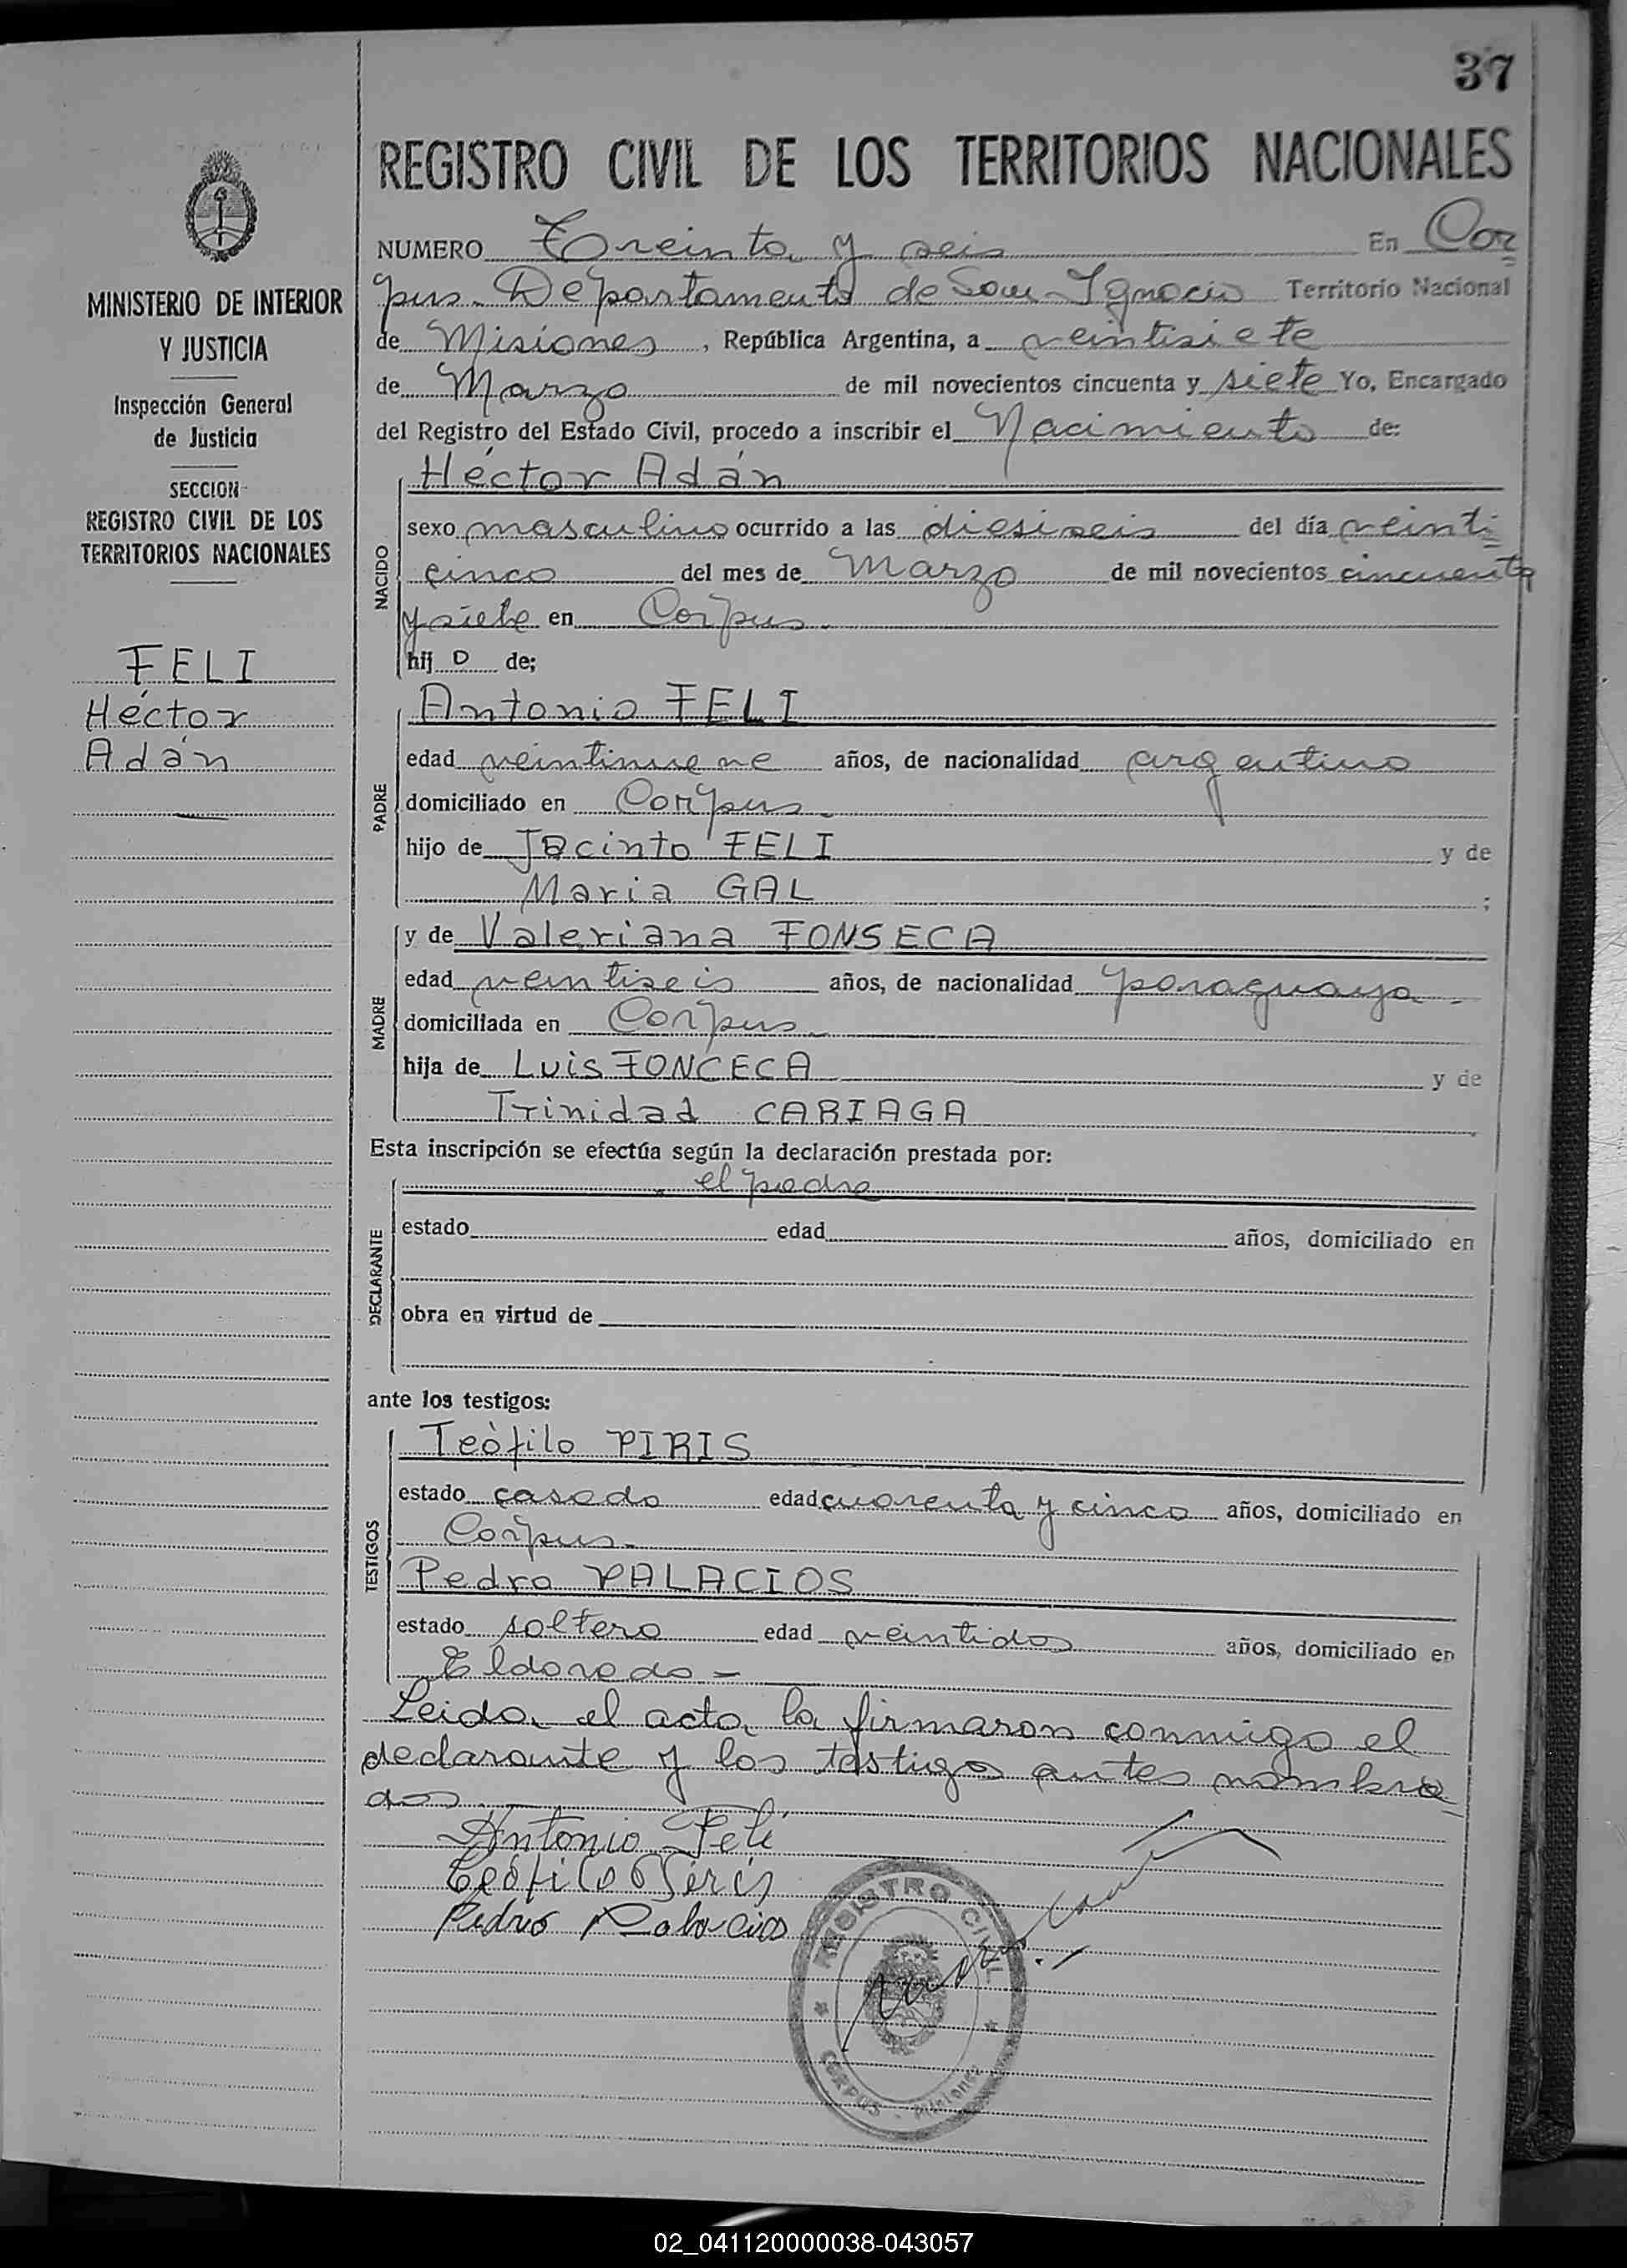 37
REGISTRO CIVIL DE LOS TERRITORIOS NACIONALES
MINISTERIO DE INTERIOR
Y JUSTICIA
Inspección General
de Justicia
SECCION
REGISTRO CIVIL DE LOS
TERRITORIOS NACIONALES
FELI
Héctor
Adán
NUMERO Treinta y seis En Cor
pus. Departamento de San Ignacio Territorio Nacional
de Misiones, República Argentina, a veintisiete
de Marzo de mil novecientos cincuenta y siete Yo, Encargado
del Registro del Estado Civil, procedo a inscribir el Nacimiento de:
Héctor Adán
NACIDO
sexo masculino ocurrido a las diesiseis del día veinti
cinco del mes de Marzo de mil novecientos cincuenta
y siete en Corpus.
hijo de;
Antonio FELI
PADRE
edad veintinueve años, de nacionalidad argentino
domiciliado en Corpus.
hijo de Jacinto FELI y de
Maria GAL ;
y de Valeriana FONSECA
MADRE
edad veintiseis años, de nacionalidad paraguaya.
domiciliada en Corpus.
hija de Luis FONCECA y de
Trinidad CARIAGA
Esta inscripción se efectúa según la declaración prestada por:
el padre
DECLARANTE
estado edad años, domiciliado en
obra en virtud de
ante los testigos:
Teòfilo PIRIS
TESTIGOS
estado casado edad cuarenta y cinco años, domiciliado en
Corpus.
Pedro PALACIOS
estado soltero edad veintidos años, domiciliado en
Eldorado -
Leida el acta la firmaron conmigo el
declarante y los testigos antes nombra
dos.
Antonio Feli
Teófilo Piris
Pedro Palacios
REGISTRO CIVIL
CORPUS - Misiones
02_041120000038-043057